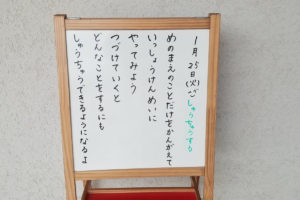 1月25日(火)ごしゅうちゅうする
めのまえのことだけをかんがえて
いっしょうけんめいに
やってみよう
つづけていくと
どんなことをするにも
しゅうちゅうできるようになるよ